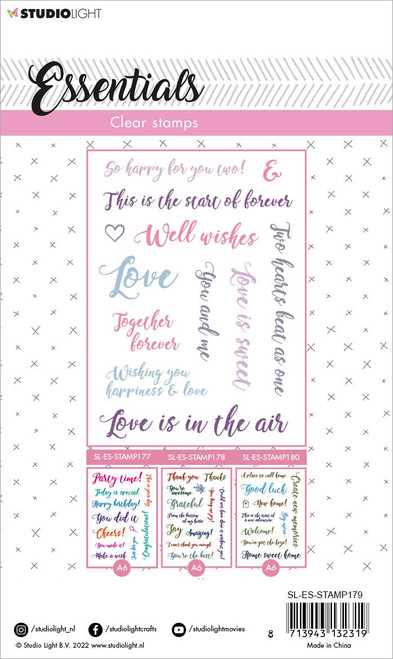 STUDIOLIGHT
Essentials
Clear stamps
So happy for you two!
&
This is the start of forever
Well wishes
Two hearts beat as one
Love
You and me
Love is sweet
Together
forever
Wishing you
happiness & love
Love is in the air
SL-ES-STAMP177
SL-ES-STAMP178
SL-ES-STAMP180
Party time!
Today is special
Happy birthday!
You did it
Cheers!
Make a wish
Congratulations!
A6
Thank you
Thanks
You're
awesome
Grateful
From the bottom
of my heart
Joy
Amazing!
I can't thank you enough
You're the best!
A6
A place to call home
Good luck
New home!
This is the start of
a new adventure
Welcome!
Home sweet home
Create new memories
A6
SL-ES-STAMP179
/studiolight_nl
/studiolightcrafts
/studiolightmovies
© Studio Light B.V. 2022 www.studiolight.nl
Made in China
8 713943 132319